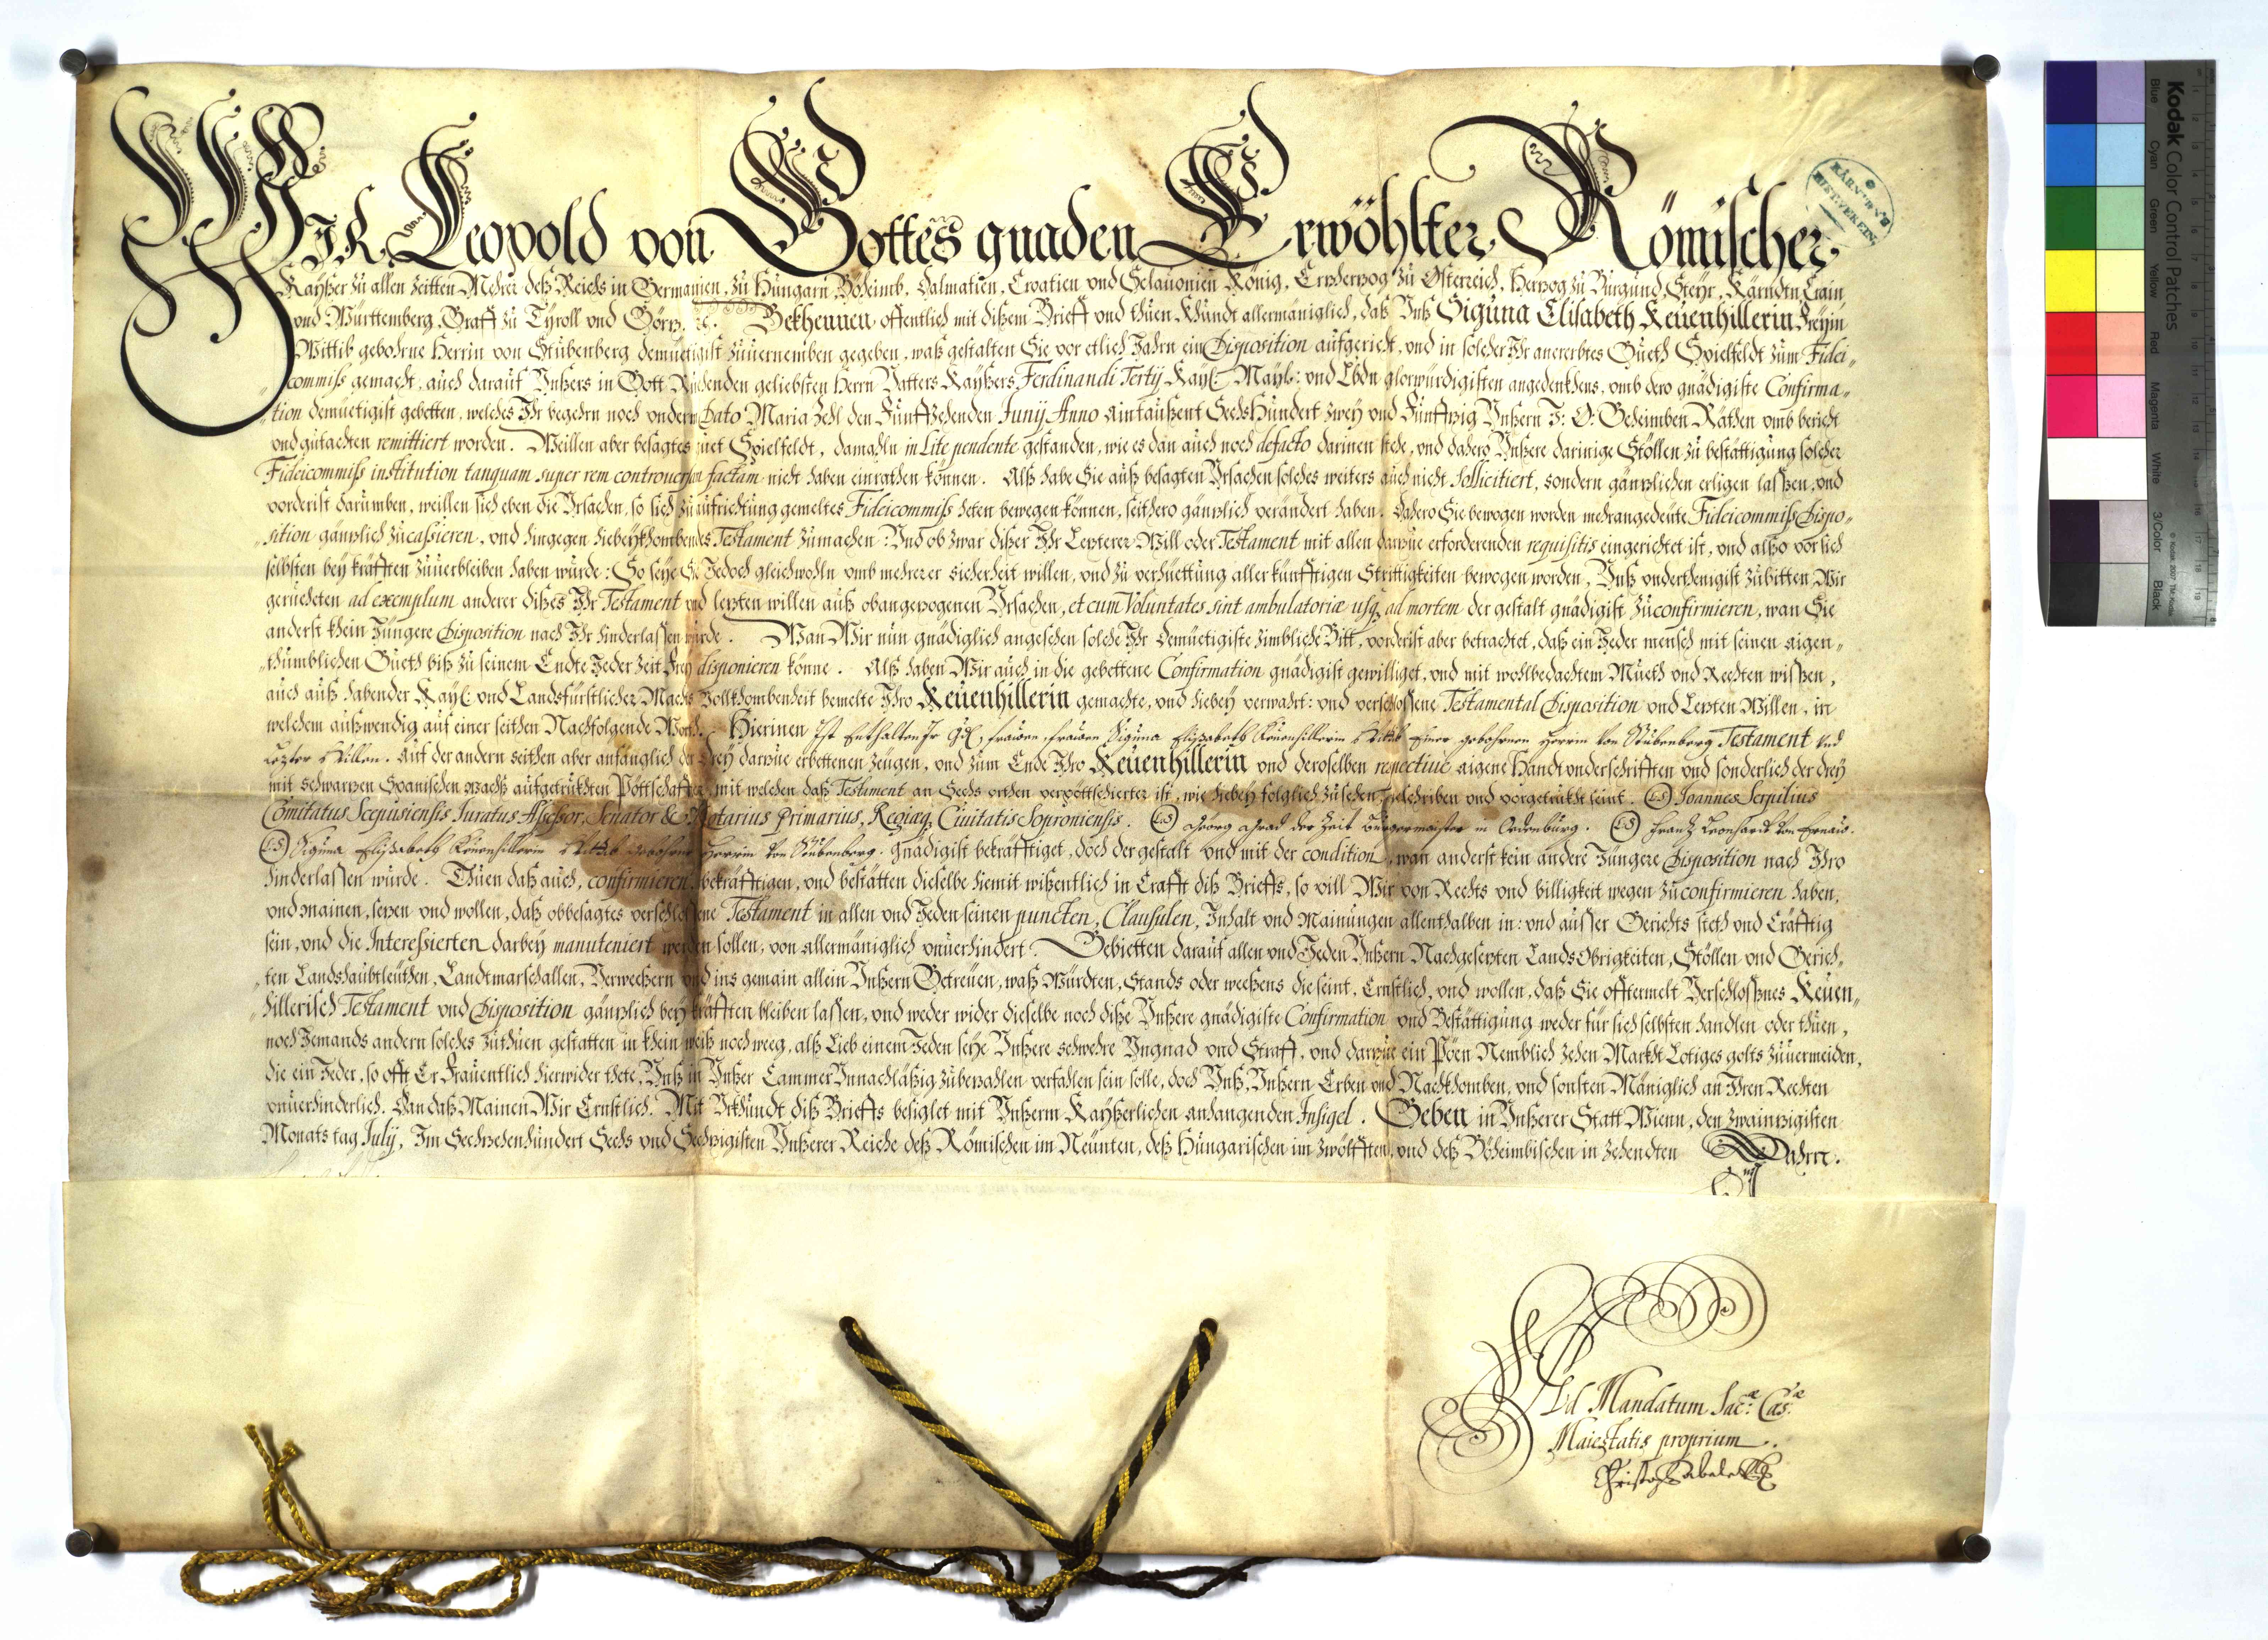 WIR Leopold von Gottes gnaden Erwöhlter Römischer
Kayßer zu allen zeitten Mehrer deß Reichs in Germanien, zu Hungarn Böheimb, Dalmatien, Croatien vnd Sclauonien König, Erzherzog zu Österreich, Herzog zu Burgund, Steyr, Kärndtn Crain
vnd Württemberg, Graff zu Tyroll vnd Görz. ec. Bekhennen offentlich mit dißem Brieff vnd thuen khundt allermäniglich, daß Vnß Siguna Elisabeth Keüenhillerin Freyin
Wittib geborne Herrin von Stubenberg demüetigist zuuernemben gegeben, waß gestalten Sie vor etlich Jahrn ein Disposition aufgericht, vnd in solcher Ihr anererbtes Gueth Spielfeldt zum Fidei„
„commiss gemacht, auch darauf Vnßers in Gott Ruehenden geliebsten Herrn Vatters Kayßers Ferdinandi Tertij Kayl: Mayt: vnd Lbdn glorwürdigisten angedenkhens, vmb dero gnädigiste Confirma„
„tion demüetigist gebetten, welches Ihr begehrn noch vnderm Dato Maria Zehl den Fünffzehenden Junij Anno aintaußent Sechs Hundert zwey vnd Fünffzig Vnßern I: O: Geheimben Räthen vmb bericht
vnd gutachten remittiert worden. Weillen aber besagtes guet Spielfeldt, damahln in Lite pendente gestanden, wie es dan auch noch defacto darinen stehe, vnd dahero Vnßere darinige Stöllen zu bestättigung solcher
Fideicommiss institution tanquam super rem controuersam factam nicht haben einrathen können. Alß habe Sie auß besagten Vrsachen solches weiters auch nicht sollicitiert, sondern gänzlichen erligen laßen, vnd
vorderist darumben, weillen sich eben die Vrsachen, so sich zu aufrichtung gemeltes Fideicommiss heten bewegen können, seithero gänzlich verändert haben. Dahero Sie bewogen worden mehrangedeute Fideicommiss Dispo„
„sition gänzlich zu cassieren, vnd hingegen hiebeykhombendes Testament zumachen: Vnd ob zwar dißer Ihr Lezterer Will oder Testament mit allen darzue erforderenden requisitis eingerichtet ist, vnd alßo vor sich
selbsten bey kräfften zuuerbleiben haben würde: So seye Sie Jedoch gleichwohln vmb mehrerer sicherheit willen, vnd zu verhüettung aller künfftigen Strittigkeiten bewogen worden, Vnß vnderthenigist zubitten, Wir
geruecheten ad exemplum anderer dißes Ihr Testament vnd lezten willen auß obangezogenen Vrsachen, et cum Voluntates sint ambulatoriæ usq. ad mortem der gestalt gnädigist zu confirmieren, wan Sie
anderst khein Jüngere Disposition nach Ihr hinderlassen würde. Wan Wir nun gnädiglich angesehen solche Ihr demüetigiste zimbliche Bitt, vorderist aber betrachtet, daß ein Jeder mensch mit seinen aigen„
„thumblichen Gueth biß zu seinem Endte Jeder Zeit frey disponieren könne. Alß haben Wir auch in die gebettene Confirmation gnädigist gewilliget, vnd mit wohlbedachtem Mueth vnd Rechten wißen,
auch auß habender Kayl: vnd Landsfürstlicher Macht Vollkhombenheit bemelte Ihro Keüenhillerin gemachte, vnd hiebey verwahrt: vnd verschloßene Testamental Disposition vnd Lezten Willen, in
welchem außwendig auf einer seithen Nachfolgende Worth. Hierinen Ist Enthalten Ir Gl. frawen frawen Siguna Elisabeth Keüenhillerin Wittib Einer gebohrnen Herrin von Stubenberg Testament vnd
Lezter Willen. Auf der andern seithen aber anfänglich der drey darzue erbettenen zeugen, vnd zum Ende Ihro Keüenhillerin vnd deroselben respectiue aigene Handt vnderschrifften vnd sonderlich der drey
mit schwarzen Spanischen wachß aufgetrukhten Pöttschafften, mit welchen daß Testament an Sechs orthen verpöttschierter ist, wie hiebey folglich zusehen geschriben vnd vorgetrukht seint. (L.S.) Joannes Serpilius
Comitatus Scepusiensis Juratus Assessor, Senator & Notarius Primarius, Regiæq. Ciuitatis Soproniensis. (L.S.) Georg Grad der Zeit Burgermaister in Ödenburg. (L.S.) Franz Leonhardt von Ernaw.
(L.S.) Siguna Elisabeth Keüenhillerin Wittib gebohrne Herrin von Stubenberg. gnädigist bekräfftiget, doch der gestalt vnd mit der condition, wan anderst kein andere Jüngere Disposition nach Ihro
hinderlassen würde. Thuen daß auch, confirmieren, bekräfftigen, vnd bestätten dieselbe hiemit wißentlich in Crafft diß Brieffs, so vill Wir von Rechts vnd billigkeit wegen zu confirmieren haben,
vnd mainen, sezen vnd wollen, daß obbesagtes verschlossene Testament in allen vnd Jeden seinen puncten, Clausulen, Inhalt vnd Mainungen allenthalben in: vnd ausser Gerichts steth vnd Cräfftig
sein, vnd die Interessierten darbey manuteniert werden sollen, von allermäniglich vnuerhindert. Gebietten darauf allen vnd Jeden Vnßern Nachgesezten Lands Obrigkeiten, Stöllen vnd Gerich„
„ten Landshaubtleüthen, Landtmarschallen, Verweeßern vnd ins gemain allein Vnßern Getreüen, waß Würdten, Stands oder weeßens die seint, Ernstlich, vnd wollen, daß Sie offtermelt Verschloßnes Keüen„
„hillerisch Testament vnd Disposition gänzlich bey kräfften bleiben lassen, vnd weder wider dieselbe noch diße Vnßere gnädigiste Confirmation vnd Bestättigung weder für sich selbsten handlen oder thuen,
noch Jemands andern solches zuthuen gestatten in khein weiß noch weeg, alß Lieb einem Jeden seye Vnßere schwehre Vngnad vnd Straff, vnd darzue ein Pöen Nemblich zehen Markht Lötiges golts zuuermeiden,
die ein Jeder, so offt Er Frauentlich hierwider thete, Vnß in Vnßer Cammer Vnnachläßig zubezahlen verfahlen sein solle, doch Vnß, Vnßern Erben vnd Nachkhomben, vnd sonsten Mäniglich an Ihren Rechten
vnuerhinderlich. Dan daß Mainen Wir Ernstlich. Mit Vrkhundt diß Brieffs besiglet mit Vnßerm Kayßerlichen anhangenden Insigel. Geben in Vnßerer Statt Wienn, den zwainzigisten
Monats tag July, Im Sechzehenhundert Sechs vnd Sechzigisten Vnßerer Reiche deß Römischen im Neunten, deß Hungarischen im zwölfften, vnd deß Böheimbischen in zehendten Jahrr.
Ad Mandatum Sac.æ Cæs.æ
Maiestatis proprium.
Christoff Abele
KÄRNT'N'S
HIST. VEREIN.
Kodak Color Control Patches
Blue Cyan Green Yellow Red Magenta White 3/Color Black